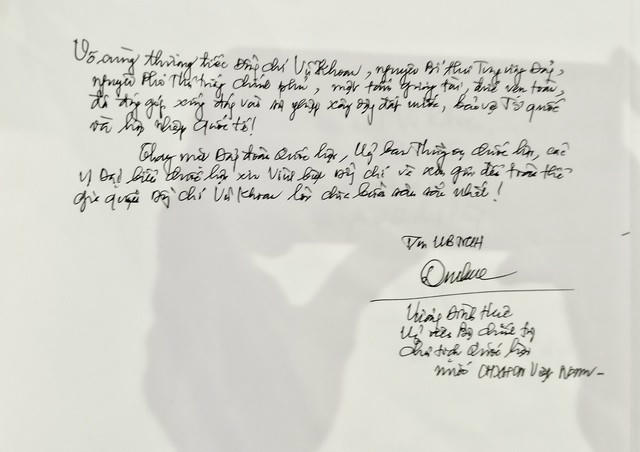 Vô cùng thương tiếc Đồng chí Vũ Khoan, nguyên Bí thư Trung ương Đảng,
nguyên Phó Thủ tướng Chính phủ, một tấm gương tài, đức vẹn toàn,
đã đóng góp xứng đáng vào sự nghiệp xây dựng đất nước, bảo vệ Tổ quốc
và hội nhập Quốc tế!
Thay mặt Quốc hội, Uỷ ban Thường vụ Quốc hội, các
vị Đại biểu Quốc hội xin vĩnh biệt Đồng chí và xin gửi đến toàn thể
gia quyến Đồng chí Vũ Khoan lời chia buồn sâu sắc nhất!
TM UBTVQH
Vương Đình Huệ
Uỷ viên Bộ Chính trị
Chủ tịch Quốc hội
nước CHXHCN Việt Nam